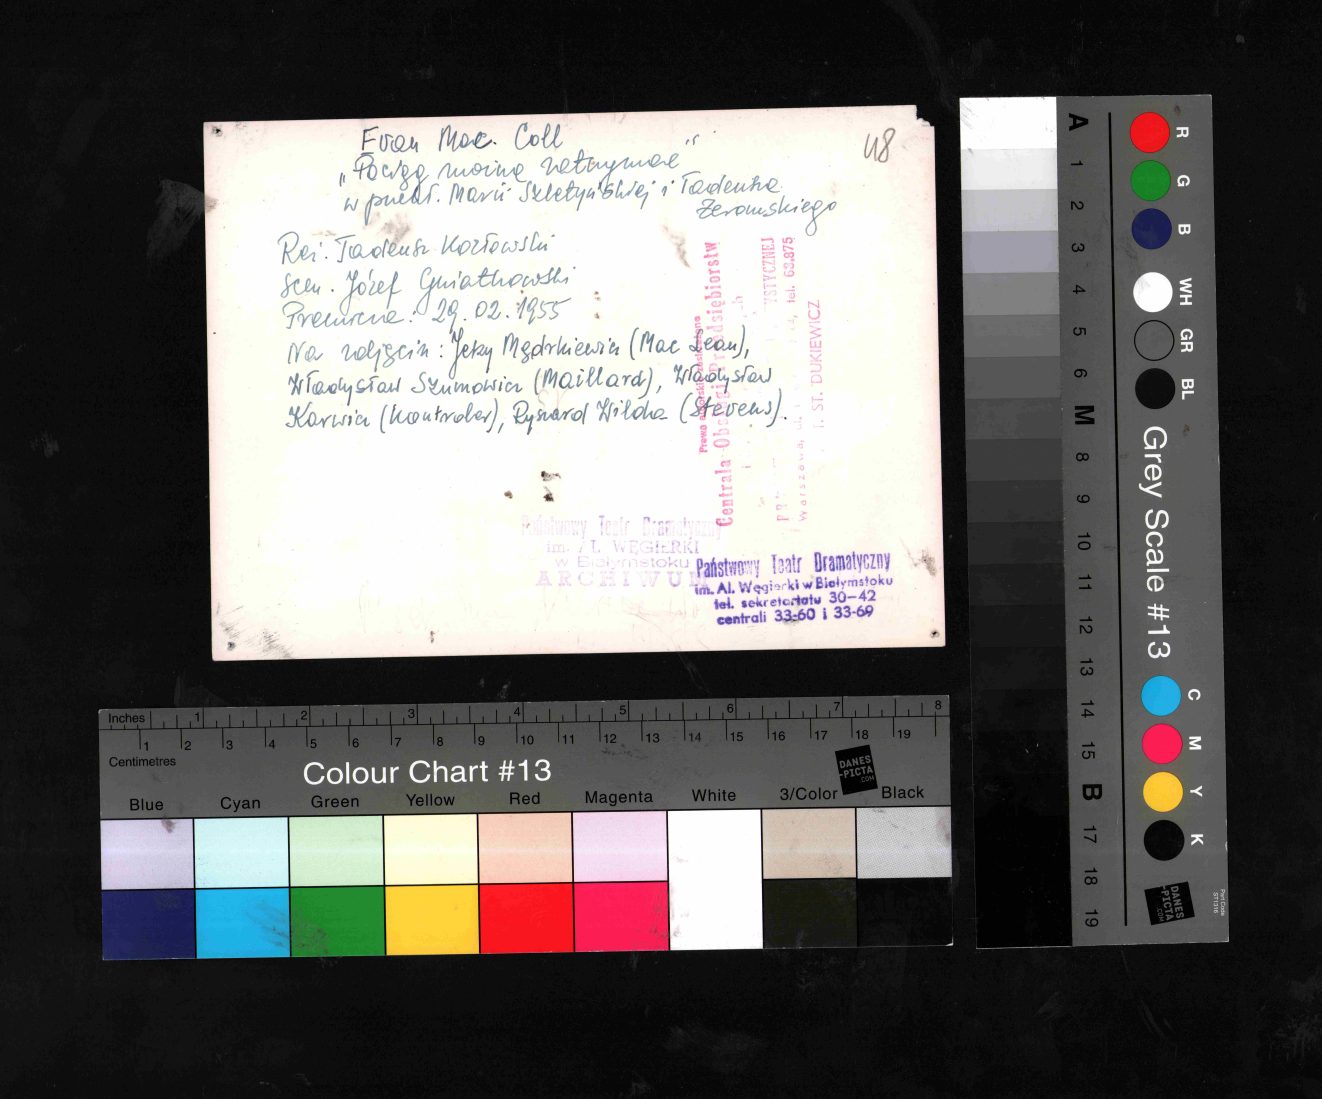 Evan Mac. Coll
48
„Pociąg można zatrzymać"
w przekł. Marii Szletyńskiej i Tadeusza
Żeromskiego
Reż. Tadeusz Kozłowski
Scen. Józef Gniatkowski
Premiera: 29.02.1955
Na zdjęciu: Jerzy Mędrkiewicz (Mac Lean),
Władysław Szumowicz (Maillard), Władysław
Karwicz (Kontroler), Ryszard Wilcha (Stevens).
Prawa autorskie zastrzeżone
Centrala Obsługi Przedsiębiorstw
YSTYCZNEJ
Warszawa, ul. tel. 63.875
ST. DUKIEWICZ
Państwowy Teatr Dramatyczny
im. AL. WĘGIERKI
w Białymstoku
ARCHIWUM
Państwowy Teatr Dramatyczny
im. Al. Węgierki w Białymstoku
tel. sekretariatu 30-42
centrali 33-60 i 33-69
Inches 1 2 3 4 5 6 7 8
1 2 3 4 5 6 7 8 9 10 11 12 13 14 15 16 17 18 19
Centimetres
Colour Chart #13
DANES
-PICTA
.COM
Blue Cyan Green Yellow Red Magenta White 3/Color Black
A 1 2 3 4 5 6 M 8 9 10 11 12 13 14 15 B 17 18 19
R G B WH GR BL
Grey Scale #13
C M Y K
DANES
-PICTA
.COM
Part Code
ST1316